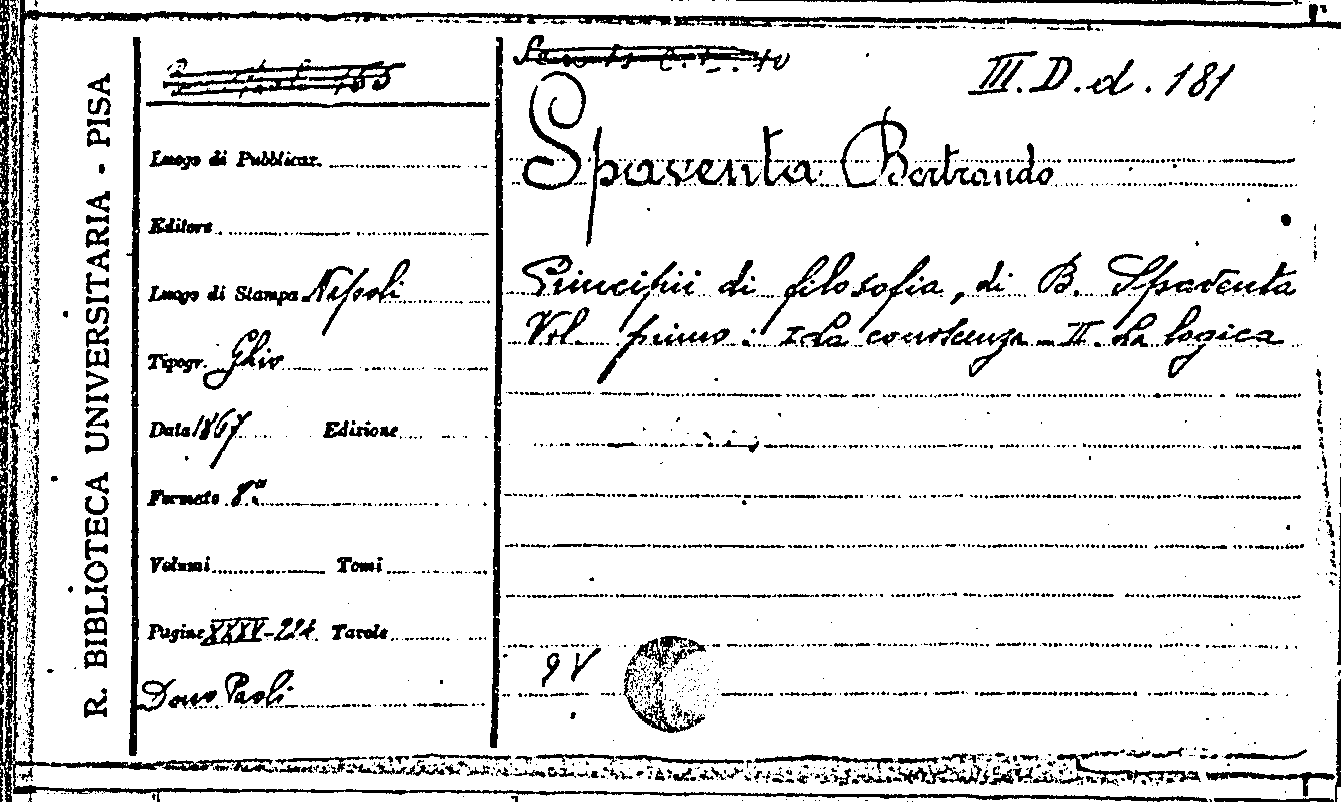 R. BIBLIOTECA UNIVERSITARIA - PISA
III. D. d. 181
Spaventa Bertrando
Luogo di Pubblicaz.
Editore
Luogo di Stampa Napoli
Tipogr. Ghio
Data 1867 Edizione
Formato 8.°
Volumi Tomi
Pagine XXXV-224 Tavole
Dono Paoli
Principii di filosofia, di B. Spaventa
Vol. primo: I La conoscenza - II. La logica
9 V